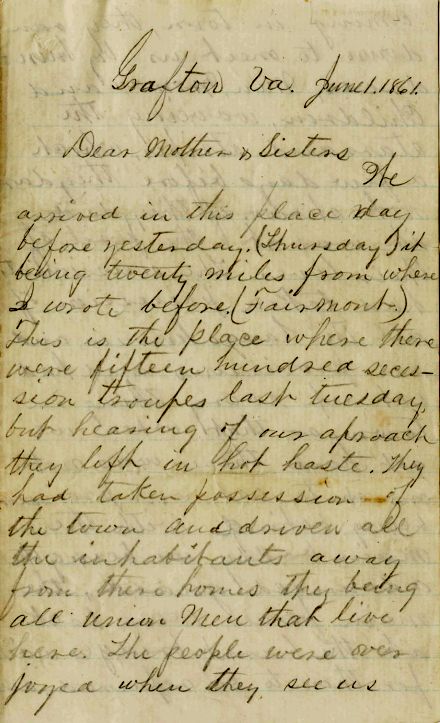 Grafton Va. June 1. 1861.
Dear Mother & Sisters
We
arrived in this place day
before yesterday. (Thursday) it
being twenty miles from where
I wrote before. (Fairmont.)
This is the place where there
were fifteen hundred seces-
sion troupes last tuesday,
but hearing of our aproach
they left in hot haste. They
had taken possession of
the town and driven all
the inhabitants away
from there homes they being
all union men that live
here. The people were over
joyed when they see us